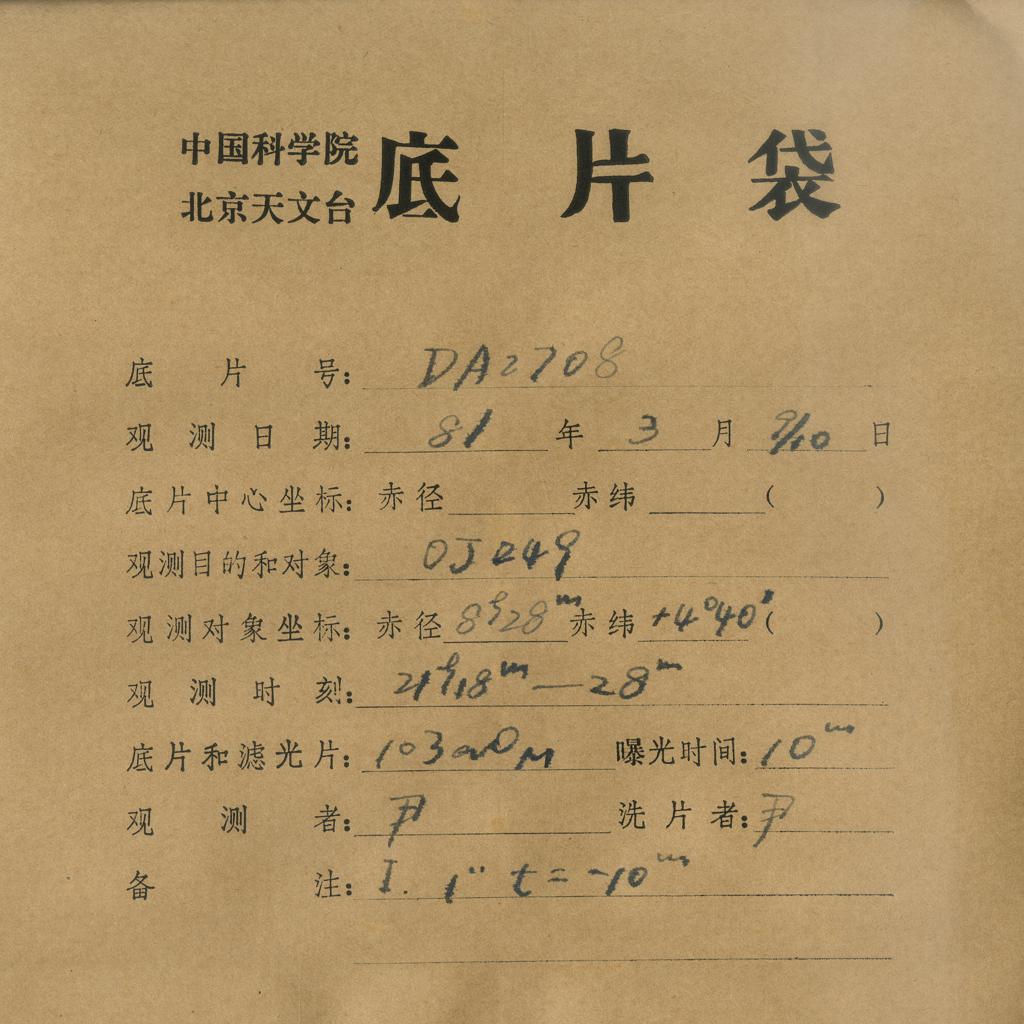 中国科学院
北京天文台
底片袋
底片号: DA2708
观测日期: 81年 3月 9/10日
底片中心坐标: 赤径 赤纬 ( )
观测目的和对象: OJ 249
观测对象坐标: 赤径 8h28m 赤纬 +4°40' ( )
观测时刻: 21h18m—28m
底片和滤光片: 103aO 曝光时间: 10m
观测者: 尹 洗片者: 尹
备注: I. 1" t = -10m